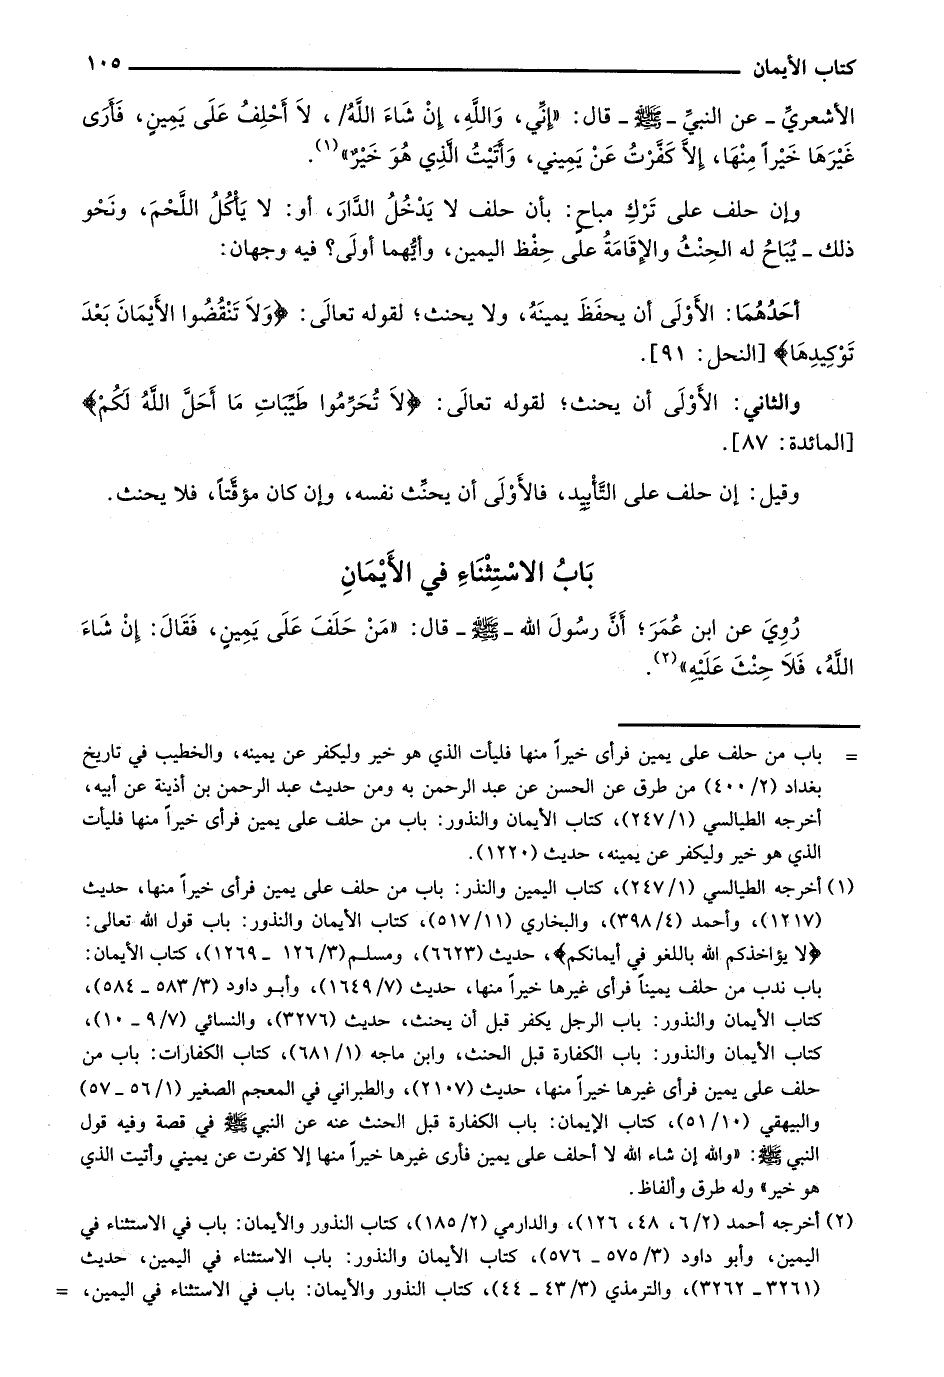 كتاب الأيمان ١٠٥
الأشعريِّ ـ عن النبيِّ ـ ﷺ ـ قال: «إِنِّي، وَاللَّهِ، إِنْ شَاءَ اللَّهُ/، لاَ أَحْلِفُ عَلَى يَمِينٍ، فَأَرَى
غَيْرَهَا خَيْراً مِنْهَا، إِلاَّ كَفَّرْتُ عَنْ يَمِيني، وَأَتَيْتُ الَّذِي هُوَ خَيْرٌ»(١).
وإن حلف على تَرْكِ مباحٍ: بأن حلف لا يَدْخُلُ الدَّارَ، أو: لا يَأْكُلُ اللَّحْمَ، ونَحْو
ذلك ـ يُبَاحُ له الحِنْثُ والإِقَامَةُ على حِفْظ اليمين، وأيُّهما أولَى؟ فيه وجهان:
أحَدُهُمَا: الأَوْلَى أن يحفَظَ يمينَهُ، ولا يحنث؛ لقوله تعالَى: ﴿وَلاَ تَنْقُضُوا الأَيْمَانَ بَعْدَ
تَوْكِيدِهَا﴾ [النحل: ٩١].
والثاني: الأَوْلَى أن يحنث؛ لقوله تعالَى: ﴿لاَ تُحَرِّمُوا طَيِّبَاتِ مَا أَحَلَّ اللَّهُ لَكُمْ﴾
[المائدة: ٨٧].
وقيل: إن حلف على التَّأْبِيدِ، فالأَوْلَى أن يحنِّث نفسه، وإن كان مؤقَّتاً، فلا يحنث.
بَابُ الاسْتِثْنَاءِ في الأَيْمَانِ
رُوِيَ عن ابن عُمَرَ؛ أنَّ رسُولَ الله ـ ﷺ ـ قال: «مَنْ حَلَفَ عَلَى يَمِينٍ، فَقَالَ: إِنْ شَاءَ
اللَّهُ، فَلاَ حِنْثَ عَلَيْهِ»(٢).
= باب من حلف على يمين فرأى خيراً منها فليأت الذي هو خير وليكفر عن يمينه، والخطيب في تاريخ
بغداد (٢/ ٤٠٠) من طرق عن الحسن عن عبد الرحمن به ومن حديث عبد الرحمن بن أذينة عن أبيه،
أخرجه الطيالسي (١/ ٢٤٧)، كتاب الأيمان والنذور: باب من حلف على يمين فرأى خيراً منها فليأت
الذي هو خير وليكفر عن يمينه، حديث (١٢٢٠).
(١) أخرجه الطيالسي (١/ ٢٤٧)، كتاب اليمين والنذر: باب من حلف على يمين فرأى خيراً منها، حديث
(١٢١٧)، وأحمد (٤/ ٣٩٨)، والبخاري (١١/ ٥١٧)، كتاب الأيمان والنذور: باب قول الله تعالى:
﴿لا يؤاخذكم الله باللغو في أيمانكم﴾، حديث (٦٦٢٣)، ومسلم(٣/ ١٢٦ ـ ١٢٦٩)، كتاب الأيمان:
باب ندب من حلف يميناً فرأى غيرها خيراً منها، حديث (٧/ ١٦٤٩)، وأبو داود (٣/ ٥٨٣ ـ ٥٨٤)،
كتاب الأيمان والنذور: باب الرجل يكفر قبل أن يحنث، حديث (٣٢٧٦)، والنسائي (٧/ ٩ ـ ١٠)،
كتاب الأيمان والنذور: باب الكفارة قبل الحنث، وابن ماجه (١/ ٦٨١)، كتاب الكفارات: باب من
حلف على يمين فرأى غيرها خيراً منها، حديث (٢١٠٧)، والطبراني في المعجم الصغير (١/ ٥٦ ـ ٥٧)
والبيهقي (١٠/ ٥١)، كتاب الإيمان: باب الكفارة قبل الحنث عنه عن النبي ﷺ في قصة وفيه قول
النبي ﷺ: «والله إن شاء الله لا أحلف على يمين فأرى غيرها خيراً منها إلا كفرت عن يميني وأتيت الذي
هو خير» وله طرق وألفاظ.
(٢) أخرجه أحمد (٢/ ٦، ٤٨، ١٢٦)، والدارمي (٢/ ١٨٥)، كتاب النذور والأيمان: باب في الاستثناء في
اليمين، وأبو داود (٣/ ٥٧٥ ـ ٥٧٦)، كتاب الأيمان والنذور: باب الاستثناء في اليمين، حديث
(٣٢٦١ ـ ٣٢٦٢)، والترمذي (٣/ ٤٣ ـ ٤٤)، كتاب النذور والأيمان: باب في الاستثناء في اليمين، =